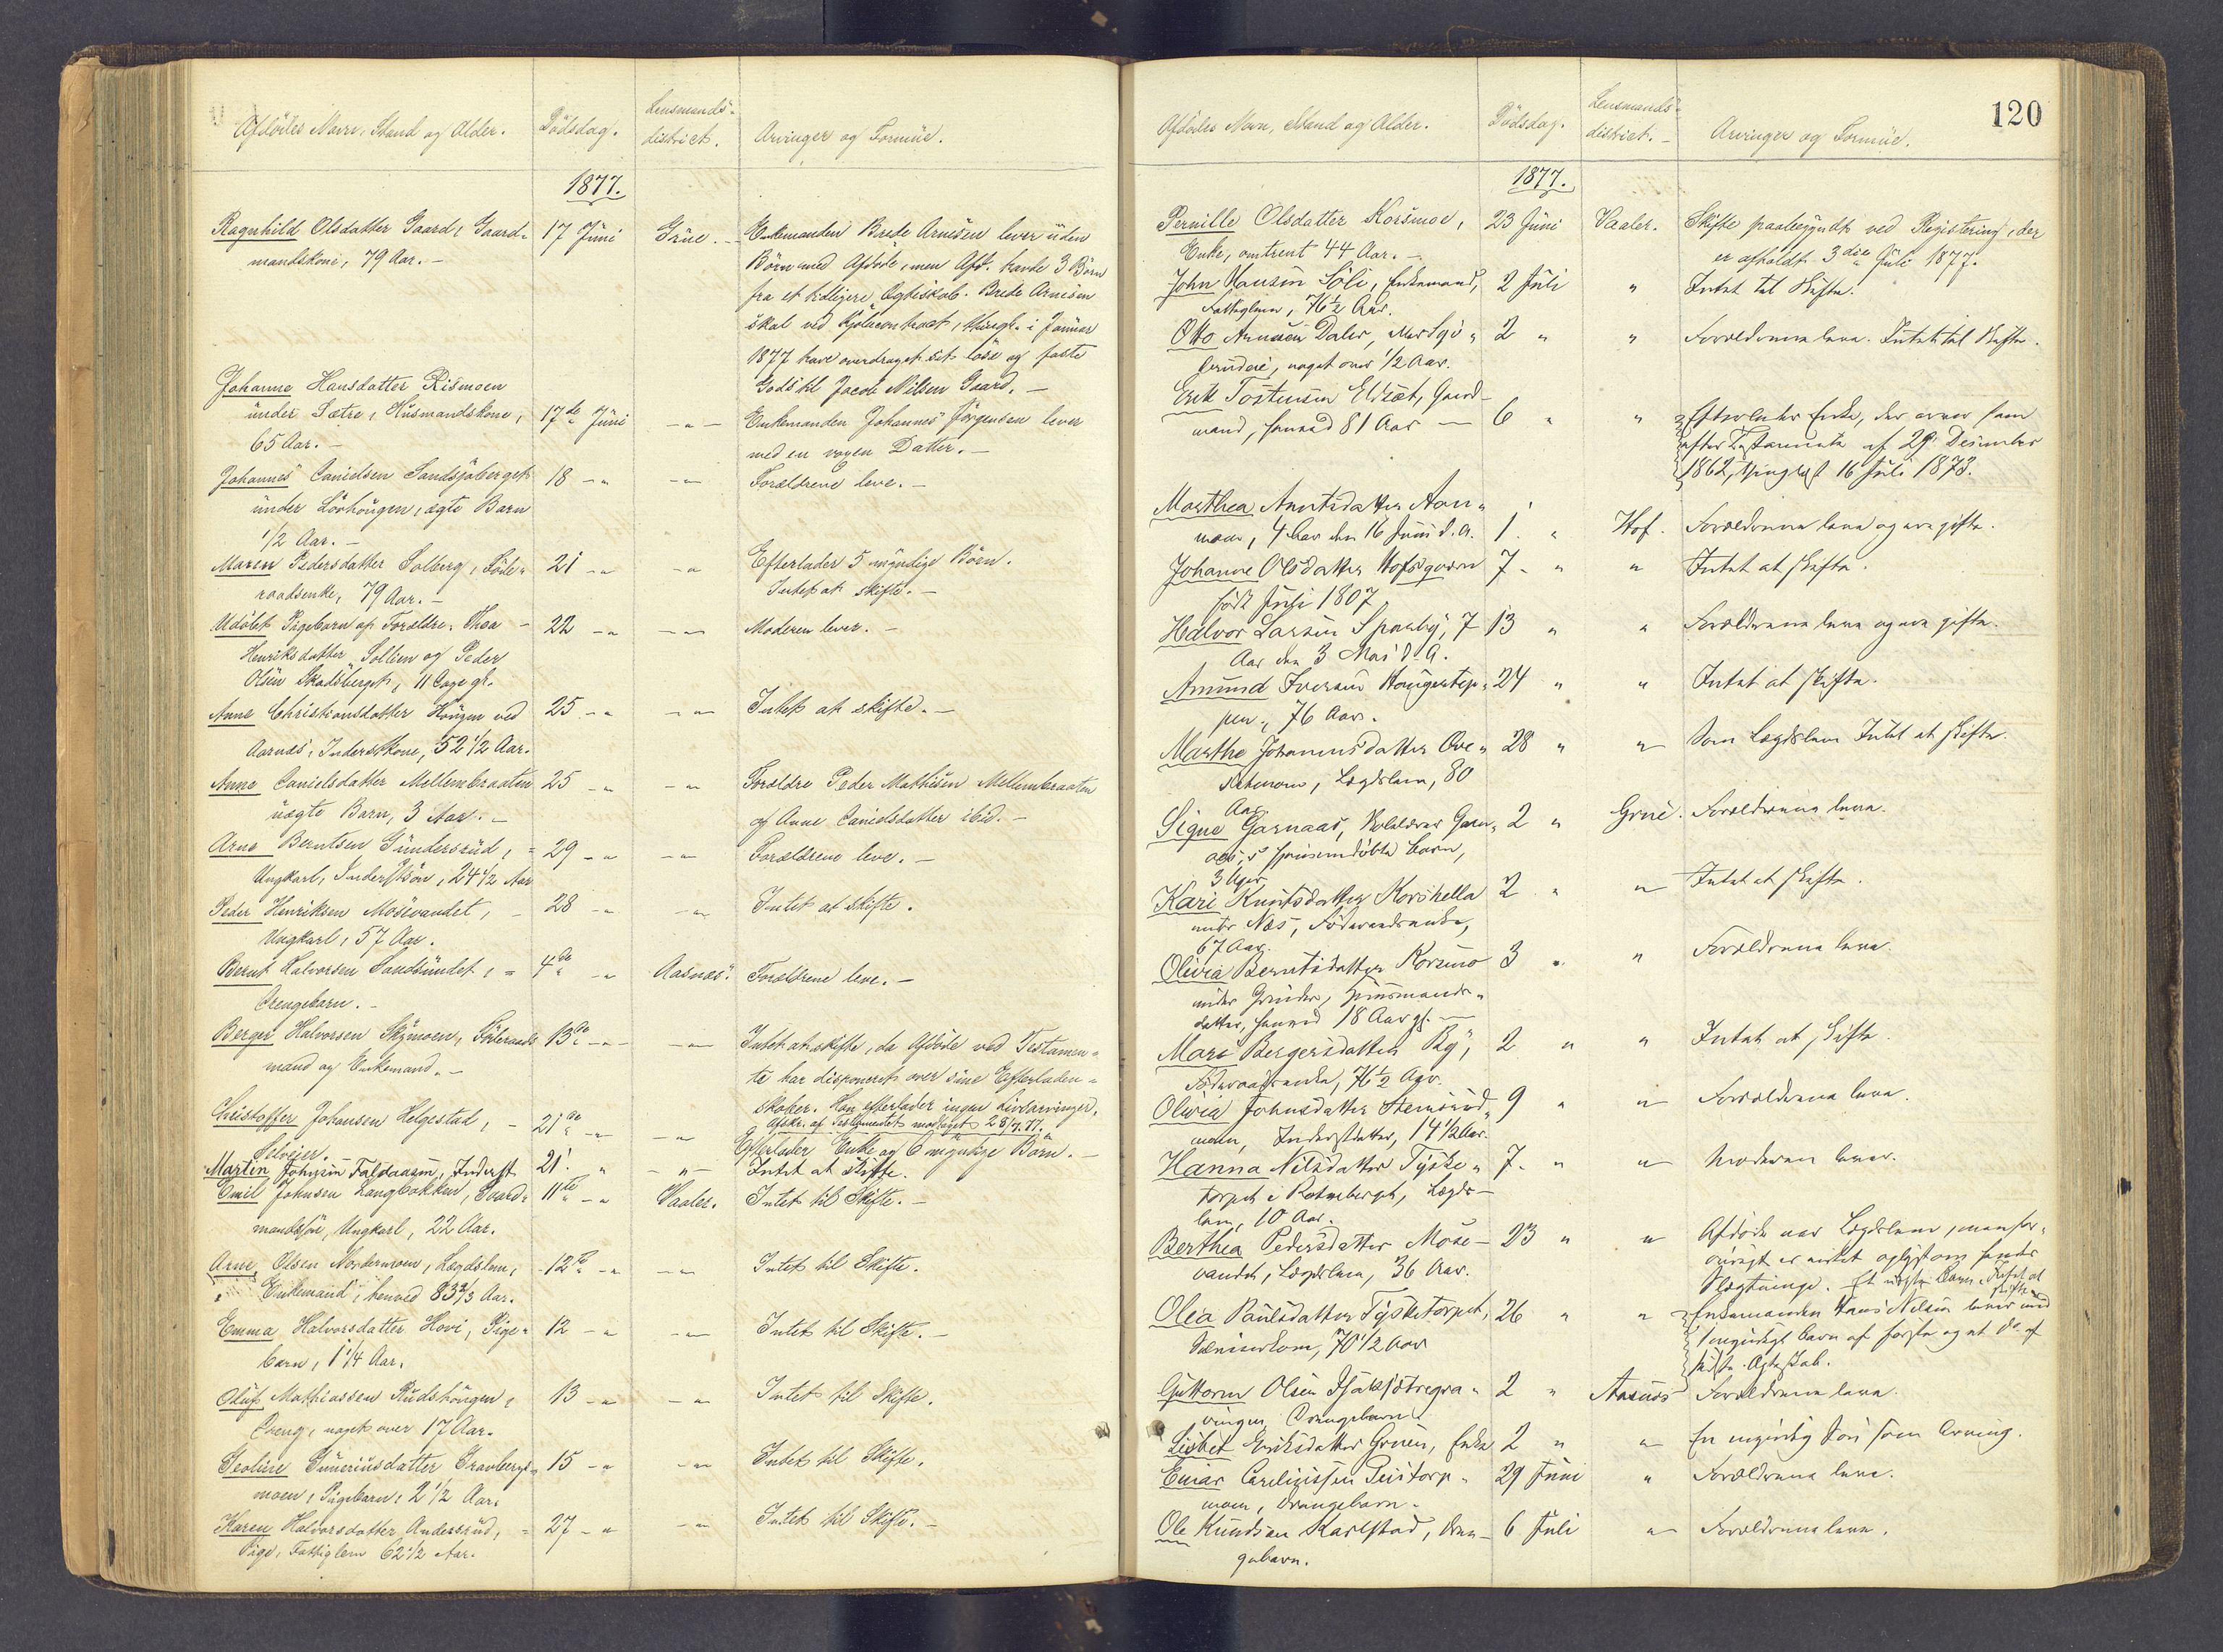 Afdødes Navn, Stand og Alder.
Dödsdag.
Lensmands-
district.
Arvinger og Formue.
1877.
Ragnhild Olsdatter Gaard, Gaard- 17 Juni Grue. - Enkemanden Brede Arnesen lever uden
mandskone, 79 Aar. - Börn med Afdöde, men Afd. havde 3 Börn
fra et tidligere Ægteskab. Brede Arnesen
skal ved Kjöbecontract, thingl. i Januar
1877 have overdraget sit löse og faste
Gods til Jacob Nilsen Gaard. -
Johanne Hansdatter Rismoen
under Sætre, Husmandskone, 17de Juni - " - Enkemanden Johannes Jörgensen lever
65 Aar. - med en voxen Datter. -
Johannes Danielsen Sandsjöberget 18 - " - " - Forældrene leve. -
under Lövhaugen, ægte Barn
1/2 Aar. -
Maren Pedersdatter Solberg, Föde- 21 - " - " Efterlader 5 myndige Börn.
raadsenke, 79 Aar. - Intet at skifte. -
Udöbt Pigebarn af Forældre: Thea 22 - " - " - Moderen lever. -
Henriksdatter Sollien og Peder
Olsen Skadsberget, 11 Dage gl.
Anne Christiansdatter Haugen ved 25 - " - " - Intet at skifte. -
Aarnæs, Inderstkone, 52 1/2 Aar.
Anne Danielsdatter Mellembraaten 25 - " - " - Forældre Peder Mathisen Mellembraaten
uægte Barn, 3 Aar. - og Anne Danielsdatter ibid. -
Arne Berntsen Gundersrud, 29 - " - " - Forældrene leve. -
Ungkarl, Inderstsön, 24 1/2 Aar
Peder Henriksen Mosevandet, 28 - " - " - Intet at skifte.
Ungkarl, 57 Aar.
Bernt Halvorsen Sandsundet, 4de - " Aasnæs. Forældrene leve. -
Drengebarn. -
Berger Halvorsen Skymoen, Föderaads- 13de - " - " - Intet at skifte, da Afdöde ved Testamen-
mand og Enkemand. - te har disponeret over sine Efterladen-
skaber. Han efterlader ingen Livsarvinger.
Afskr. af Testamentet modtaget 28/7. 77.
Christoffer Johansen Helgestad, - 21de - " - " Efterlader Enke og 6 myndige Börn. -
Selveier.
Martin Johnsen Faldaasen, Inderst. 21. " - " - Intet at skifte.
Emil Johnsen Langbakken, Gaard- 11te - " Vaaler. Intet til Skifte. -
mandssön, Ungkarl, 22 Aar.
Arne Olsen Nordermoen, Lægdslem, 12te - " - " - Intet til Skifte.
Enkemand, henved 83 2/3 Aar.
Emma Halvorsdatter Hovi, Pige- 12 - " - " - Intet til Skifte. -
barn, 1 1/4 Aar.
Oluf Mathiassen Rudshaugen, 13 - " - " - Intet til Skifte.
Dreng, noget over 17 Aar.
Teoline Guneriusdatter Gravbergs- 15 - " - " - Intet til Skifte.
moen, Pigebarn, 2 1/2 Aar.
Karen Halvorsdatter Andersrud, 27 - " - " - Intet til Skifte. -
Pige, Fattiglem 62 1/2 Aar.
120
Afdödes Navn, Stand og Alder.
Dödsdag.
Lensmands-
district. -
Arvinger og Formue.
1877.
Pernille Olsdatter Korsmoe, 23 Juni Vaaler. Skifte paabegyndt ved Registering, der
Enke, omtrent 44 Aar. - er afholdt 3die Juli 1877.
John Hansen Söli, Enkemand, 2 Juli " Intet til Skifte.
Fattiglem, 76 1/2 Aar.
Otto Arnesen Daler, 2 " " Forældrene leve. Intet til Skifte.
noget over 1/2 Aar.
Erik Tostensen Eldset, Gaard-
mand, henved 81 Aar - 6 " " Efterlader Enke, der arver ham
efter Testamente af 29 December
1862, thinglæst 16 Juli 1873.
Marthea Arntsdatter Aar-
moen, 4 Aar den 16 Juni d. A. 1. " Hof. Forældrene leve og ere gifte.
Johanne Olsdatter Hofsqværn 7 - " " Intet at skifte.
födt Juli 1807
Halvor Larsen Sparby, 7 13 " " Forældrene leve og ere gifte.
Aar den 3 Mai d. A.
Amund Iversen Haugestep- 24 " " Intet at skifte.
pen, 76 Aar.
Marthe Johannesdatter Ove- 28 " " Som Lægdslem Intet at skifte.
Lægdslem, 80
Aar
Signe Garnaas, 2 " Grue. Forældrene leve.
hjemmedöbte Barn,
3 Uger
Kari Knutsdatter Korshella 2 " " Intet at skifte.
under Næs, Föderaadsenke,
67 Aar.
Olivia Berntsdatter Korsmo 3 " " Forældrene leve.
under Grinder, Husmands-
datter, henved 18 Aar gl. -
Mari Bergersdatter Ry, 2 " " Intet at skifte.
Föderaadsenke, 76 1/2 Aar.
Olivia Johnsdatter Stemsrud- 9 " " Forældrene leve.
moen, Inderstdatter, 14 1/2 Aar.
Hanna Nilsdatter Tyske- 7 - " " Moderen lever.
torpet i Rotneberget, Lægds-
lem, 10 Aar.
Berthea Pedersdatter Mose- 23 " " Afdöde var Lægdslem, men for-
vandet, Lægdslem, 36 Aar. övrigt er intet oplyst om hendes
Slægtninge. Et uægte Barn. Intet at
skifte.
Olea Paulsdatter Tysketorpet, 26 " " Enkemanden Hans Nilsen lever med
70 1/2 Aar 1 myndigt Barn af förste og et do. af
sidste Ægteskab.
Guttorm Olsen 2 " Aasnæs Forældrene leve.
Drengebarn.
Lisbet Eriksdatter Gruen, Enke 2 " " En myndig Sön som Arving.
Einar 29 Juni " Forældrene leve.
moen, Drengebarn.
Ole Knudsen Karlstad, Dren- 6 Juli " Forældrene leve.
gebarn.